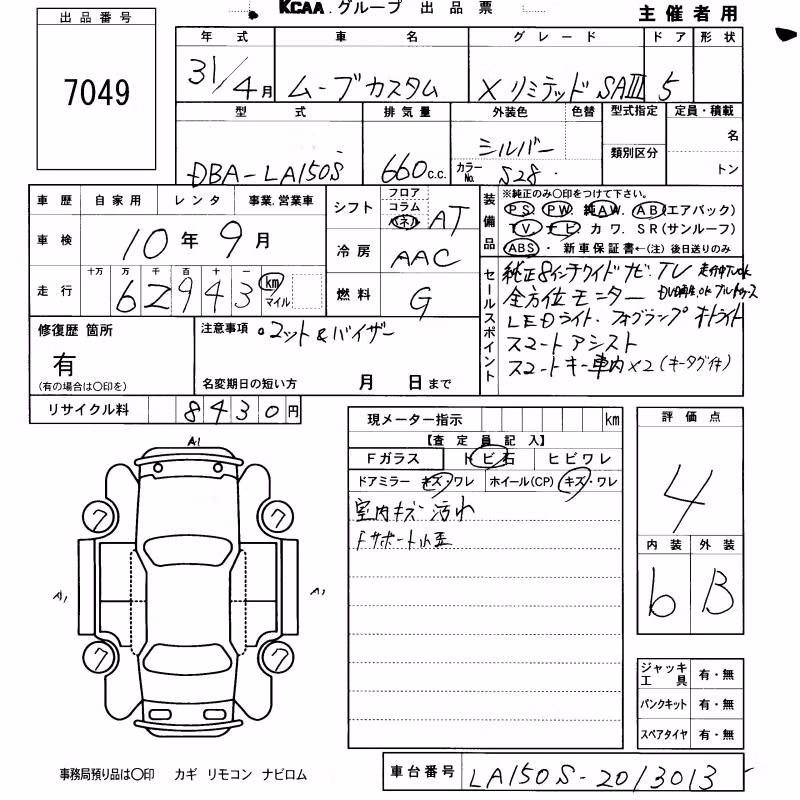 KCAA.グループ 出品票
主催者用
出品番号
7049
年式 車名 グレード ドア 形状
31/4月 ムーブカスタム Xリミテッド SAIII 5
型式 排気量 外装色 色替 型式指定 定員・積載
DBA-LA150S 660c.c. シルバー 名
カラーNo. S28 類別区分 トン
車歴 自家用 レンタ 事業.営業車
車検 10年9月
走行 十万 万 千 百 十 一
62943 km マイル
シフト フロア コラム パネル AT
冷房 AAC
燃料 G
装備品 ※純正のみ○印をつけて下さい。
PS PW. 純AW. AB(エアバック)
TV. ナビ カワ. SR(サンルーフ)
ABS・ 新車保証書←(注) 後日送りのみ
セールスポイント
純正8インチワイドナビ TV 走行中TVok
全方位モニター DVD再生ok ブルートゥース
LEDライト. フォグランプ オートライト
スマートアシスト
スマートキー車内×2(キータグ付)
修復歴 箇所
有
(有の場合は○印を)
注意事項 ・マット&バイザー
名変期日の短い方 月 日まで
リサイクル料 8430円
現メーター指示 km
【査定員記入】
Fガラス トビ石 ヒビワレ
ドアミラー キズ・ワレ ホイール(CP) キズ・ワレ
室内キズ 汚れ
Fサポート小歪
評価点
4
内装 外装
6 B
A1
7 7
A1 A1
7 7
ジャッキ工具 有・無
パンクキット 有・無
スペアタイヤ 有・無
事務局預り品は○印 カギ リモコン ナビロム
車台番号 LA150S-2013013